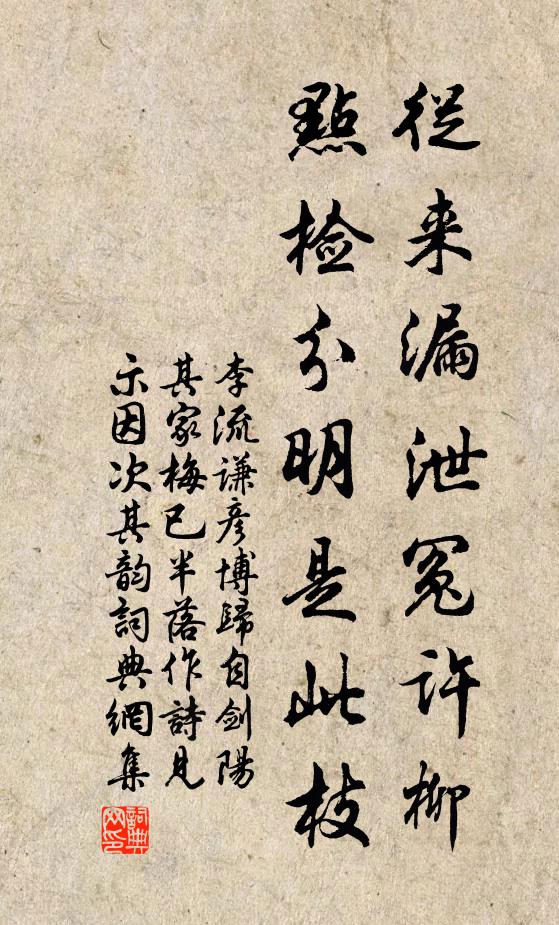 從来漏泄冤許柳
點检分明是此枝
李流谦彦博歸自劍陽
其家梅已半落作詩見
示因次其韵詞典網集
詞典网印